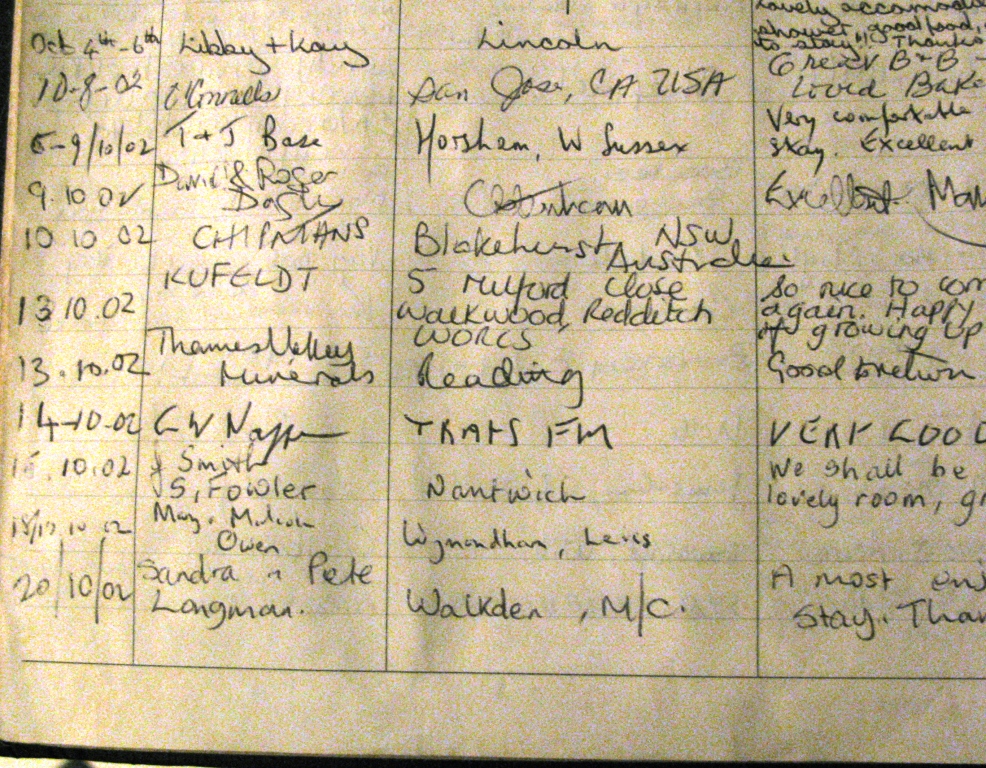 lovely accommodation
shower, good food,
Oct 4th-6th Libby + Kay Lincoln to stay!! Thanks
Great B+B -
10-8-02 O'Connads San Jose, CA USA Loved Bake
Very comfortable
5-9/10/02 T + J Base Horsham, W Sussex stay. Excellent
David & Roger
9.10.02 Excellent
10 10 02 CHIPMANS Blakehurst NSW
Australia
KUFELDT 5 Milford Close So nice to com
13 10.02 Walkwood, Redditch again. Happy
WORCS of growing up
Thames Valley
13.10.02 Minerals Reading Good
14-10-02 VERY GOOD
15.10.02 J Smith We shall be
S, Fowler Nantwich lovely room, gr
Owen Wymondham, Leics
Sandra & Pete A most
20/10/02 Longman. Walkden, M/C. Stay. Than